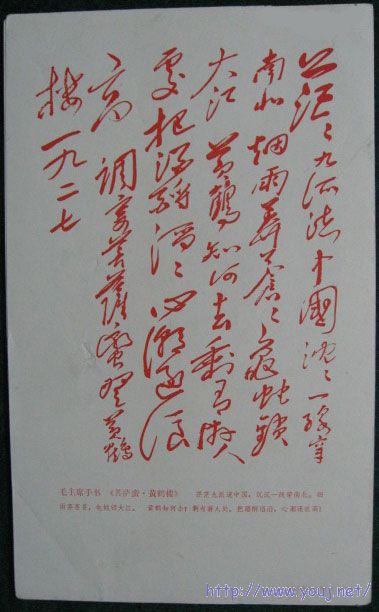 茫〻九派流中國沉〻一線穿
南北烟雨莽蒼〻龜蛇鎖
大江 黄鶴知何去剩有游人
處把酒酹滔〻心潮逐浪
高 調寄菩薩蠻登黄鶴
樓一九二七
毛主席手书 《菩萨蛮·黄鹤楼》 茫茫九派流中国,沉沉一线穿南北。烟
雨莽苍苍,龟蛇锁大江。 黄鹤知何去?剩有游人处。把酒酹滔滔,心潮逐浪高!
http://www.youj.net/